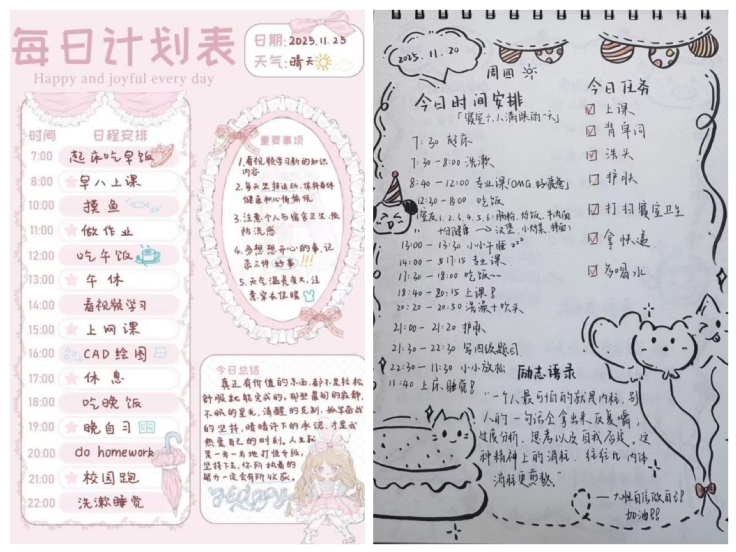 每日计划表
Happy and joyful every day
日期:2025.11.25
天气:晴天
时间 日程安排
7:00 起床吃早饭
8:00 早八上课
10:00 摸鱼
11:00 做作业
12:00 吃午饭
13:00 午休
14:00 看视频学习
15:00 上网课
16:00 CAD绘图
17:00 休息
18:00 吃晚饭
19:00 晚自习
20:00 do homework
21:00 校园跑
22:00 洗漱睡觉
重要事项
1.看视频学习新的知识
内容
2.每天坚持运动,保持身体
健康和心情愉悦
3.注意个人与宿舍卫生,预
防流感
4.多想想开心的事,记
录三件好事!!!
5.天气温差变大,注
意穿衣保暖
今日总结
真正有价值的东西,都不是轻松
舒服就能完成的,那些最初的寂静,
不眠的星光,清醒的克制,孤军奋战
的坚持,暗暗许下的承诺,才是我
热爱自己的时刻,人生就
是一步一步地打怪升级,
坚持下去,你所执着的
努力一定会有所收获。
Happy
2025.11.20
周四
今日时间安排
「寝室六人满课的一天」
7:30 起床
7:30-8:00 洗漱
8:40-12:00 专业课(OMG好疲惫)
12:30-13:00 吃饭
室友1.2.3.4.5.6:肠粉、炒饭、牛肉面
汉堡、小炒菜、
13:00-13:30 小小午睡zzz
14:00-17:15 专业课
17:30-18:00 吃饭~~
18:40-20:15 上课!
20:20-20:50 洗澡+吹头
21:00-21:20 护肤
21:30-22:30 写四级题目
22:30-11:30 小小放松
11:40 上床,睡觉!
今日任务
上课
背单词
洗头
护肤
打扫寝室卫生
拿快递
多喝水
励志语录
"一个人最可怕的就是内耗,别
人的一句话会拿出来反复嚼,
过度分析、思考以及自我否定,这
种精神上的消耗,往往比肉体
消耗更疲惫。"
加油!!